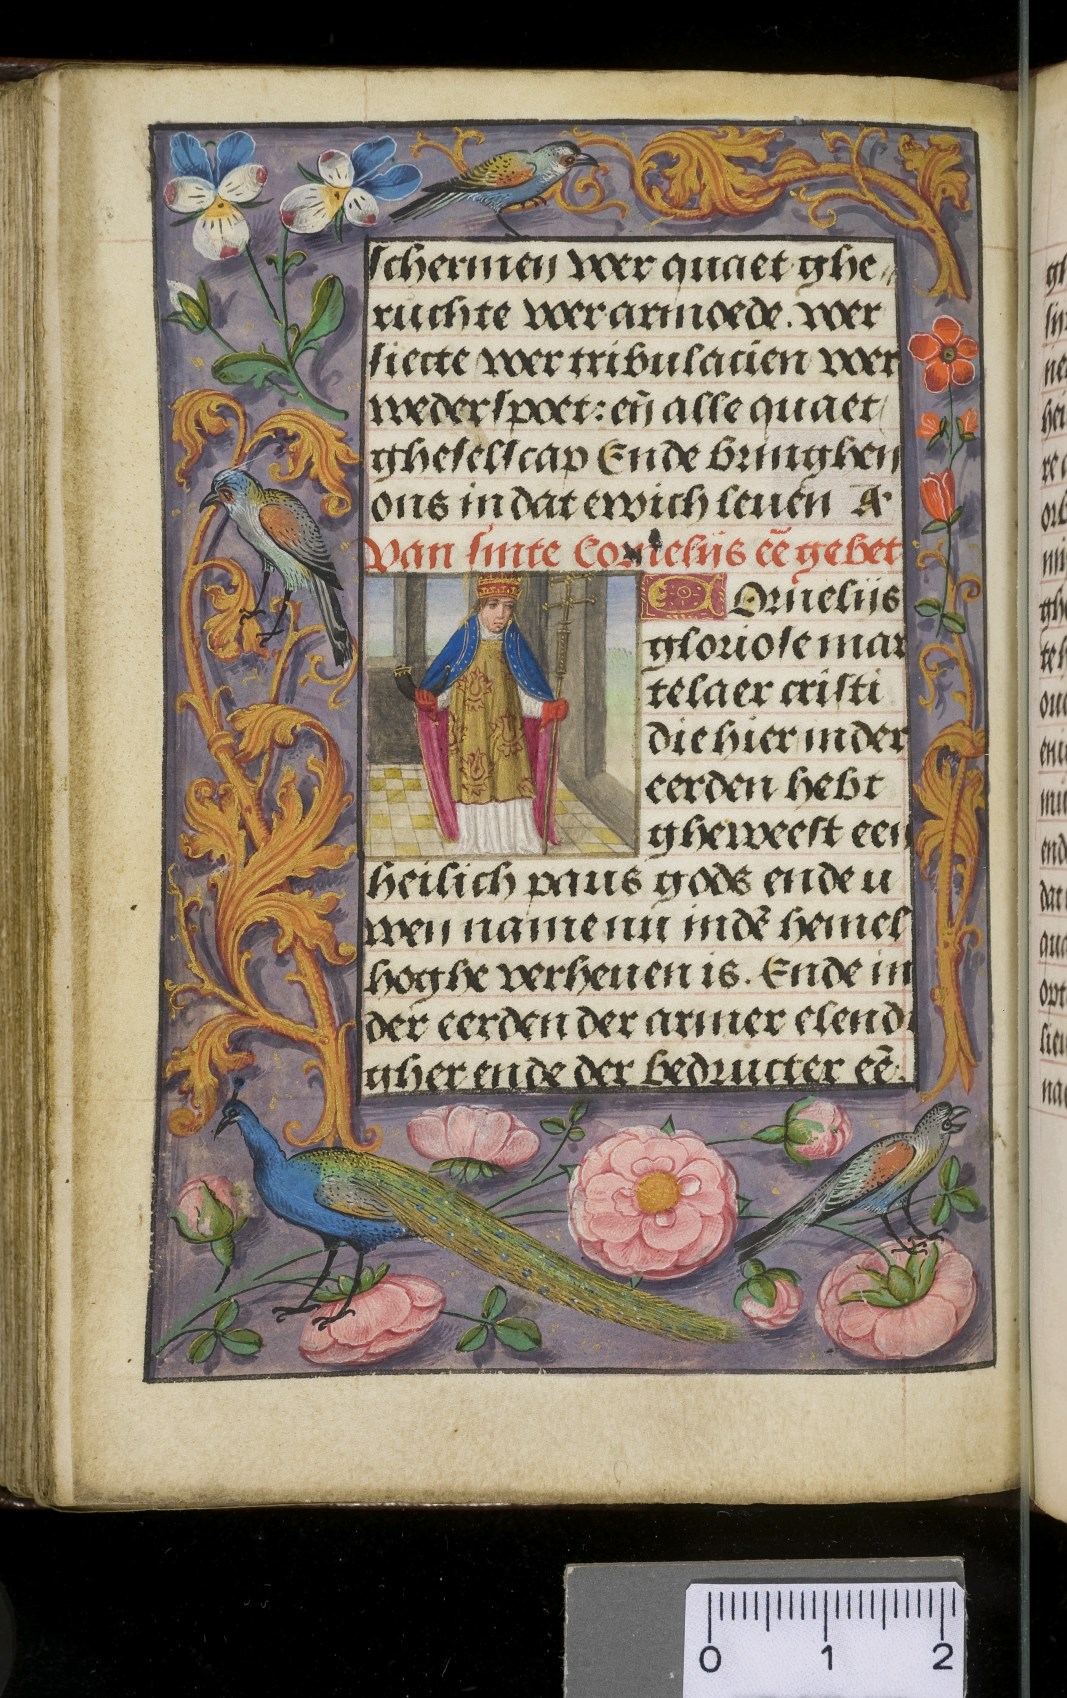 schermen wer quaet ghe„
ruchte wer armoede. wer
siecte wer tribulacien wer
wederspoet: en̄ alle quaet
gheselscap Ende bringhen
ons in dat ewich leuen A
Van sinte Cornelijs eē gebet
COrnelijs
gloriose mar
telaer cristi
die hier in der
eerden hebt
gheweest een
heilich paus gods ende u
wen name nu indē hemel
hoghe verheuen is. Ende in
der eerden der armer elendi
gher ende der bedructer eē.
0 1 2